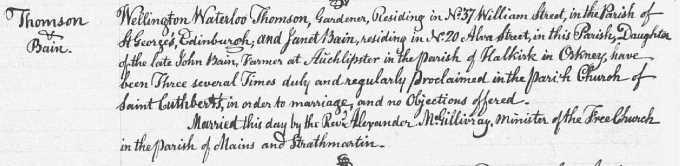 Thomson
&
Bain.
Wellington Waterloo Thomson, Gardener, Residing in No. 37. William Street, in the Parish of
St George's, Edinburgh, and Janet Bain, residing in No. 20 Alva Street, in this Parish, Daughter
of the late John Bain, Farmer at Auchlipster in the parish of Halkirk in Orkney, have
been Three several Times duly and regularly Proclaimed in the Parish Church of
Saint Cuthberts, in order to marriage, and no Objections offered.
Married this day by the Revd. Alexander McGillivray, Minister of the Free Church
in the parish of Mains and Strathmartin.